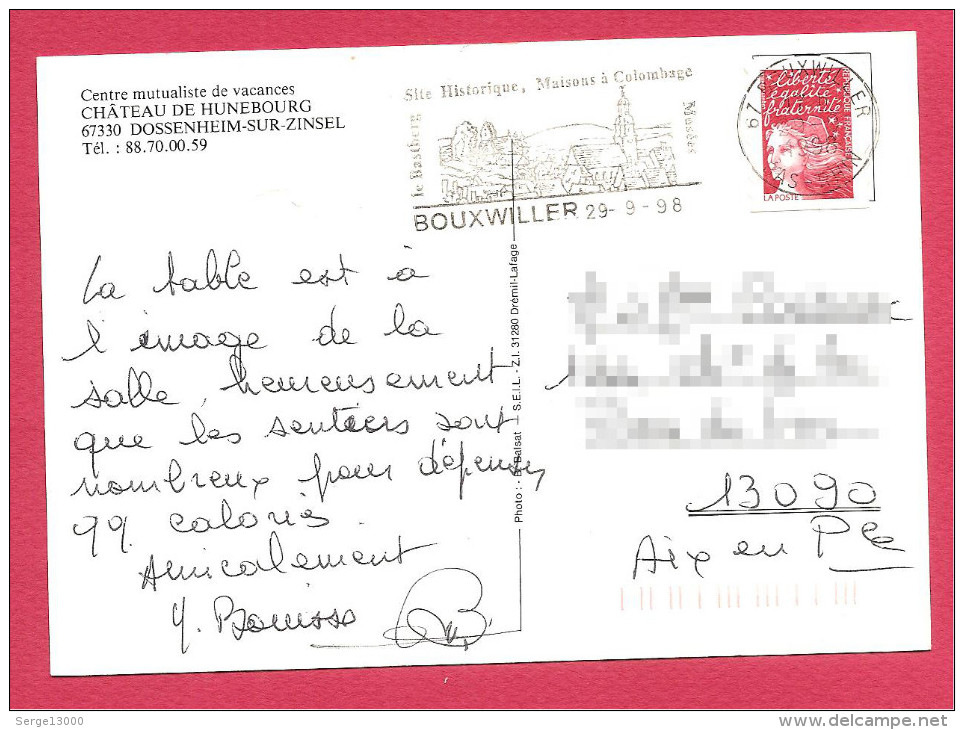 Centre mutualiste de vacances
CHÂTEAU DE HUNEBOURG
67330 DOSSENHEIM-SUR-ZINSEL
Tél. : 88.70.00.59
Site Historique, Maisons à Colombage
le Bastberg
Musées
BOUXWILLER 29-9-98
67 BOUXWILLER
liberté
égalité
fraternité
REPUBLIQUE FRANÇAISE
LA POSTE
La table est à
l'image de la
salle, heureusement
que les sentiers sont
nombreux pour dépenser
99 calories.
Amicalement
Y.
Photo : B. Balsat - S.E.I.L. - Z.I. 31280 Drémil-Lafage
13090
Aix en Pce
Serge13000
delcampe.net